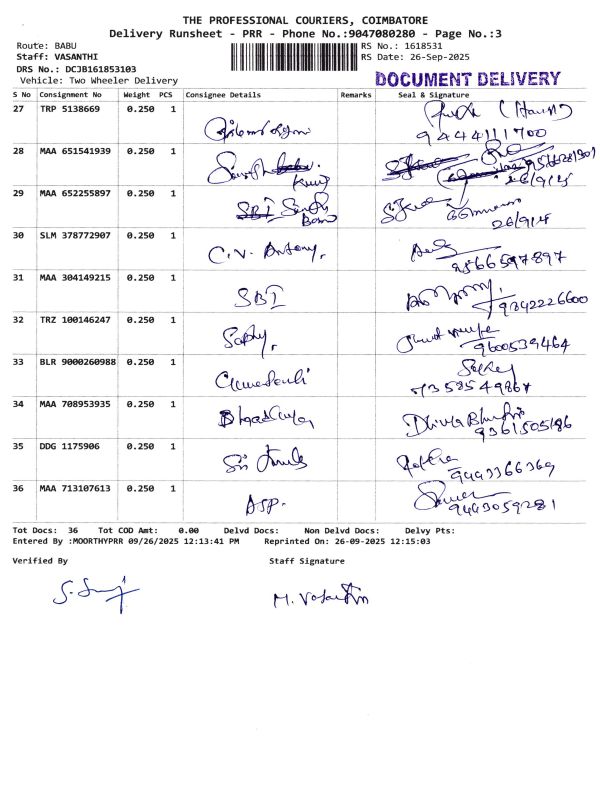 THE PROFESSIONAL COURIERS, COIMBATORE
Delivery Runsheet - PRR - Phone No.:9047080280 - Page No.:3
Route: BABU RS No.: 1618531
Staff: VASANTHI RS Date: 26-Sep-2025
DRS No.: DCJB161853103
Vehicle: Two Wheeler Delivery DOCUMENT DELIVERY
S No Consignment No Weight PCS Consignee Details Remarks Seal & Signature
27 TRP 5138669 0.250 1
9444111700
28 MAA 651541939 0.250 1
26/9/25
29 MAA 652255897 0.250 1 SBI
26/9/25
30 SLM 378772907 0.250 1 C.V. Antony.
9566597897
31 MAA 304149215 0.250 1 SBI
9842226600
32 TRZ 100146247 0.250 1
9600539464
33 BLR 9000260988 0.250 1
7358549867
34 MAA 708953935 0.250 1
9361505186
35 DDG 1175906 0.250 1 Sri
9443366369
36 MAA 713107613 0.250 1 ASP.
9443059281
Tot Docs: 36 Tot COD Amt: 0.00 Delvd Docs: Non Delvd Docs: Delvy Pts:
Entered By :MOORTHYPRR 09/26/2025 12:13:41 PM Reprinted On: 26-09-2025 12:15:03
Verified By Staff Signature
M. Vasanthi